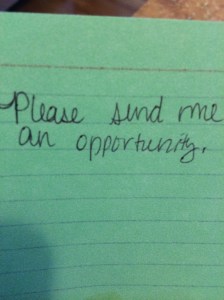 Please send me
an opportunity.